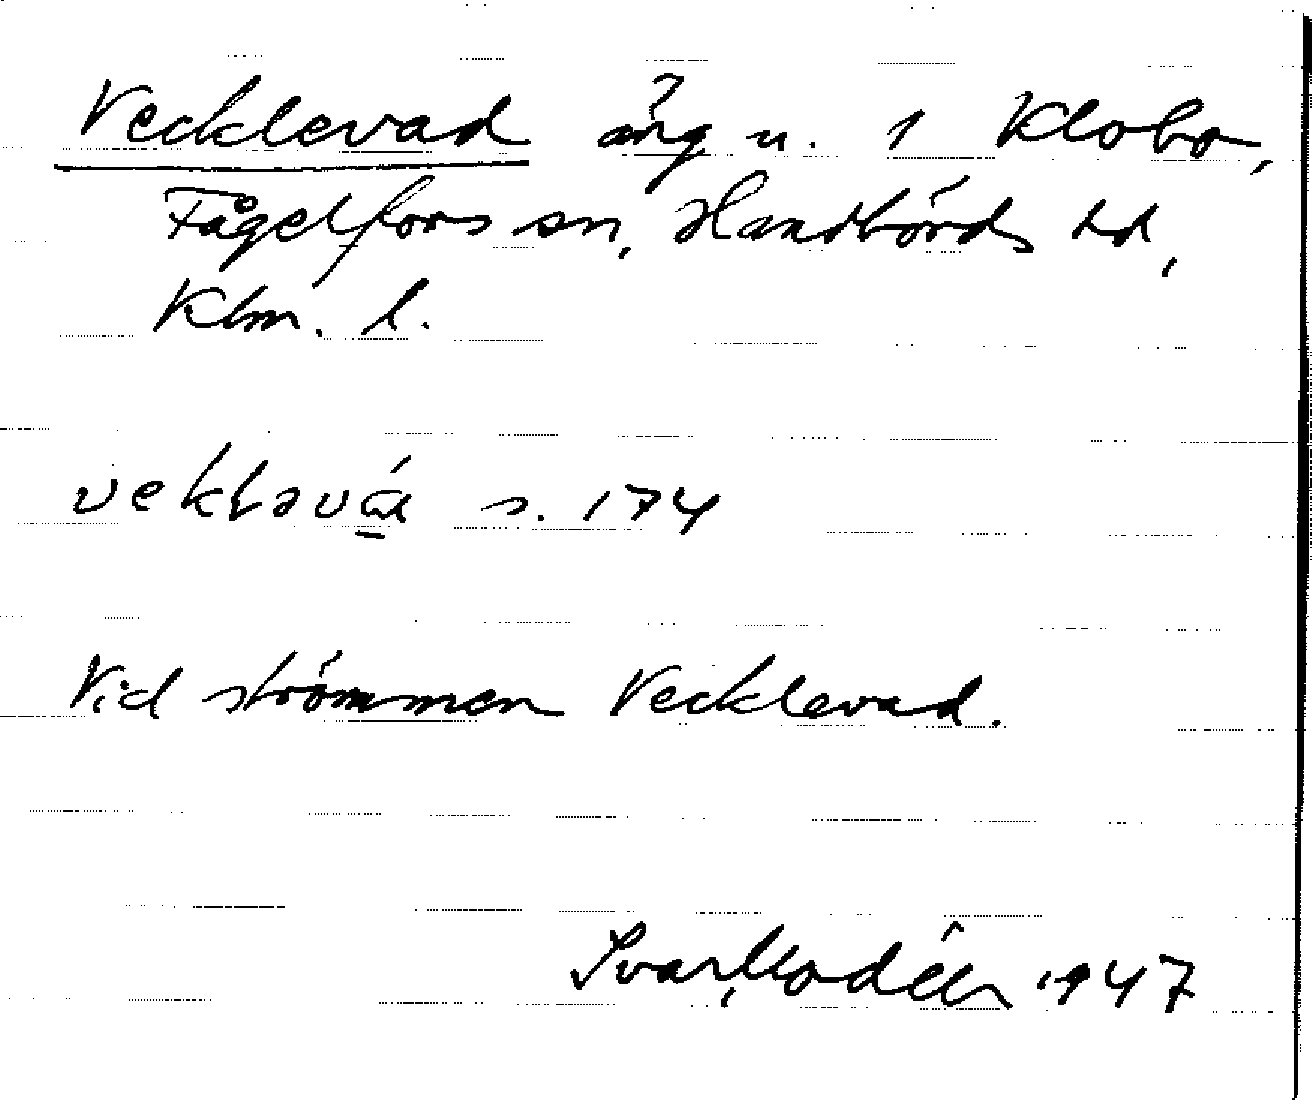 Vecklevad äng u. 1 Klobo,
Fågelfors sn, Handbörds hd,
Klm. l.
s. 174
Vid strömmen Vecklevad.
Ivar Modéer 1947